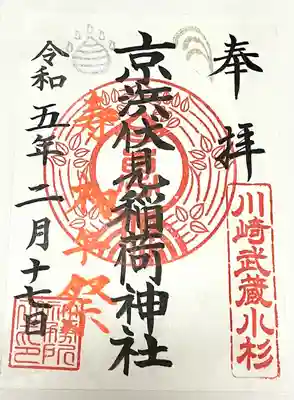 奉拝
川崎武蔵小杉
京浜伏見稲荷神社
初午祭
令和五年二月十七日